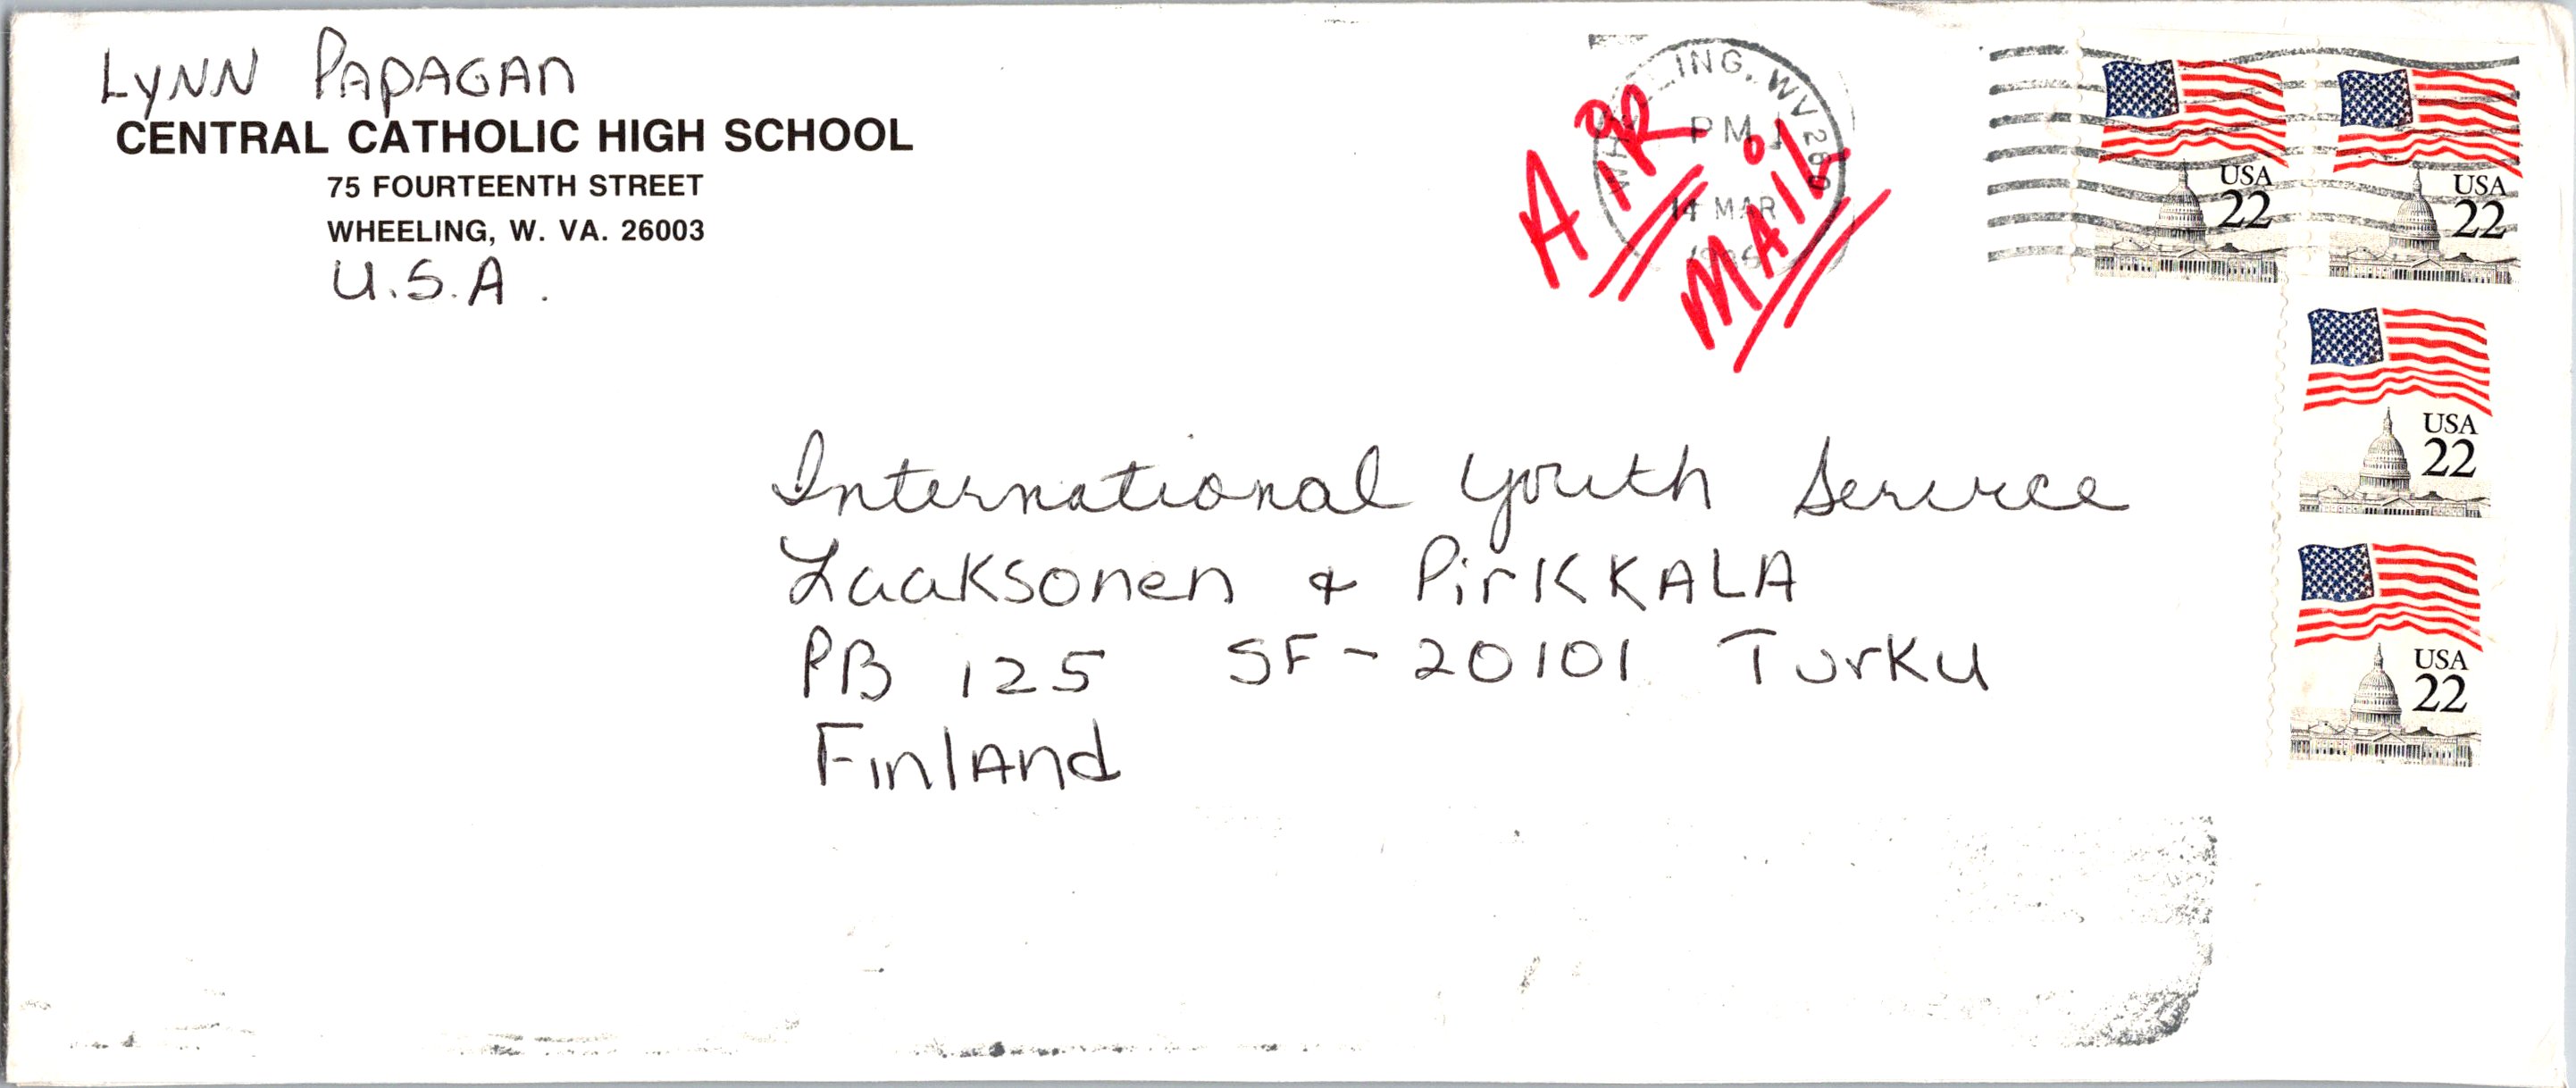 LYNN PAPAGAN
CENTRAL CATHOLIC HIGH SCHOOL
75 FOURTEENTH STREET
WHEELING, W. VA. 26003
U.S.A.
WHEELING, WV 260
PM
14 MAR
AIR
MAIL
USA
22
USA
22
USA
22
USA
22
International Youth Service
Laaksonen & PirKKALA
PB 125 SF-20101 TurKu
FinlAnd